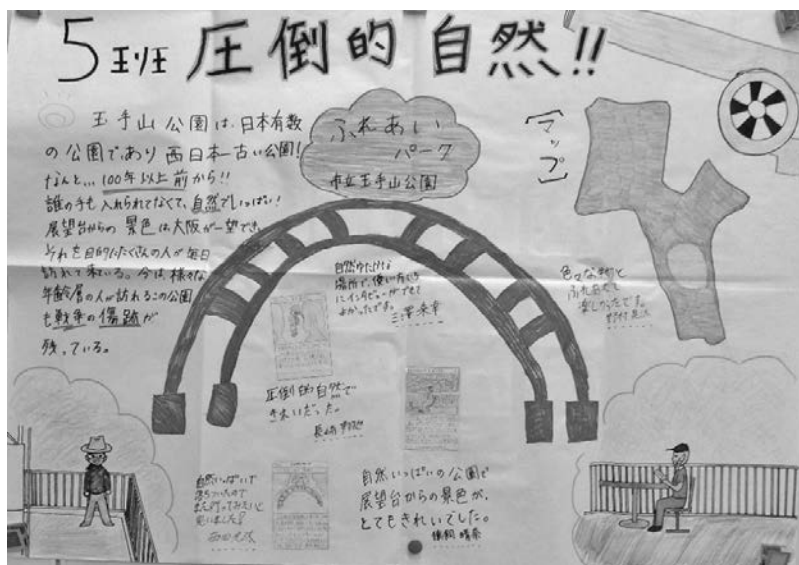 5班 圧倒的自然!!
玉手山公園は、日本有数
の公園であり西日本一古い公園!
なんと…100年以上前から!!
誰の手も入れられてなくて、自然でいっぱい!
展望台からの景色は大阪が一望でき、
それを目的にたくさんの人が毎日
訪れて来ている。今は様々な
年齢層の人が訪れるこの公園
も戦争の傷跡が
残っている。
ふれあい
パーク
市立玉手山公園
[マップ]
自然ゆたかな
場所で、
にインタビューができて
よかったです。
色々な
ふれ合えて
楽しかったです。
圧倒的自然で
きれいだった。
自然いっぱいで
落ちついたので
また行ってみたいと
思いました!
自然いっぱいの公園で
展望台からの景色が、
とてもきれいでした。